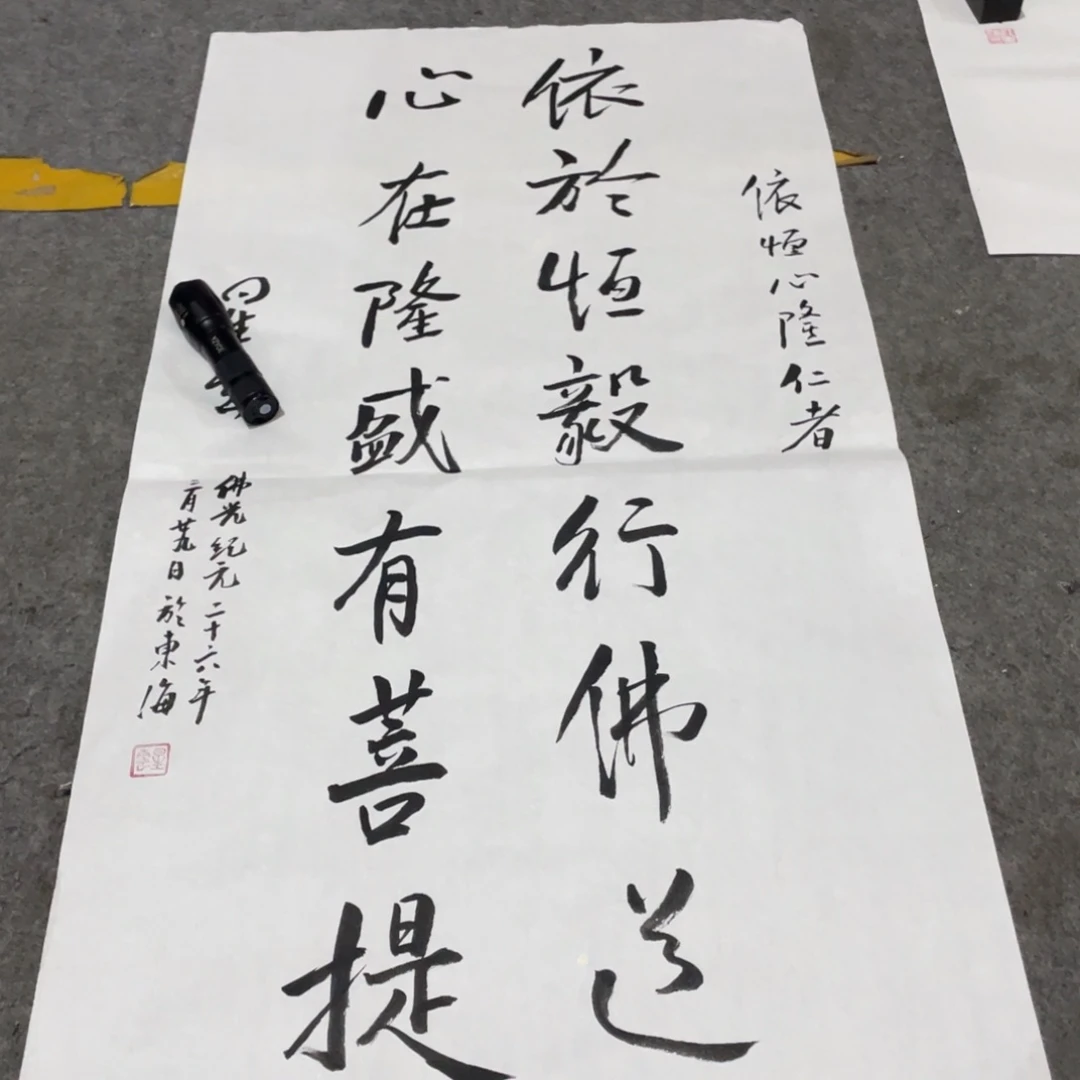 依恒心隆仁者
依於恒毅行佛道
心在隆盛有菩提
佛光紀元二十六年
二月廿九日於東海
星雲